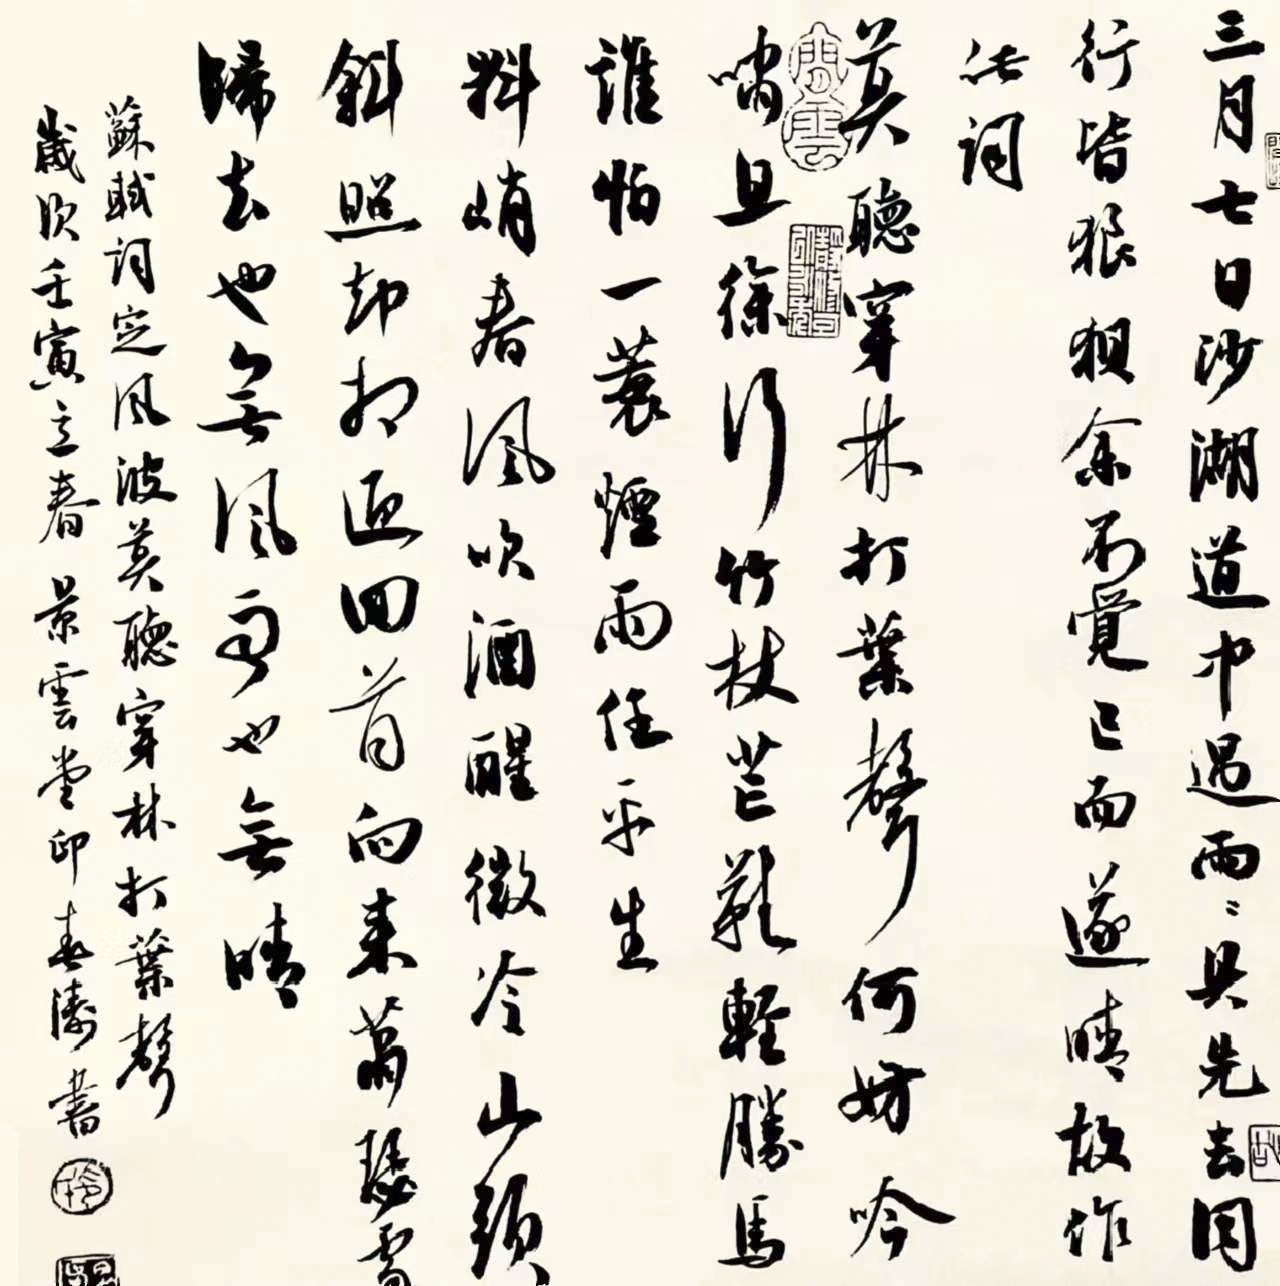 三月七日沙湖道中遇雨〻具先去同
行皆狼狽余不覺已而遂晴故作
此詞
莫聽穿林打葉聲何妨吟
嘯且徐行竹杖芒鞋輕勝馬
誰怕一蓑煙雨任平生
料峭春風吹酒醒微冷山頭
斜照却相迎回首向來蕭瑟處
歸去也無風雨也無晴
蘇軾詞定風波莫聽穿林打葉聲
歲次壬寅立春景雲堂印春濤書